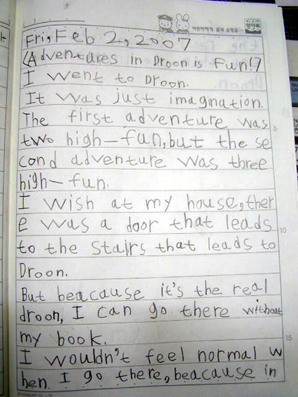 Fri, Feb 2, 2007
(Adventures in Droon is Fun!)
I went to Droon.
It was just imagnation.
The first adventure was
two high-fun, but the se
cond adventure was three
high-fun.
I wish at my house, ther
e was a door that leads
to the stairs that leads to
Droon.
But beacause it's the real
droon, I can go there without
my book.
I wouldn't feel normal w
hen I go there, beacause in
5
10
15